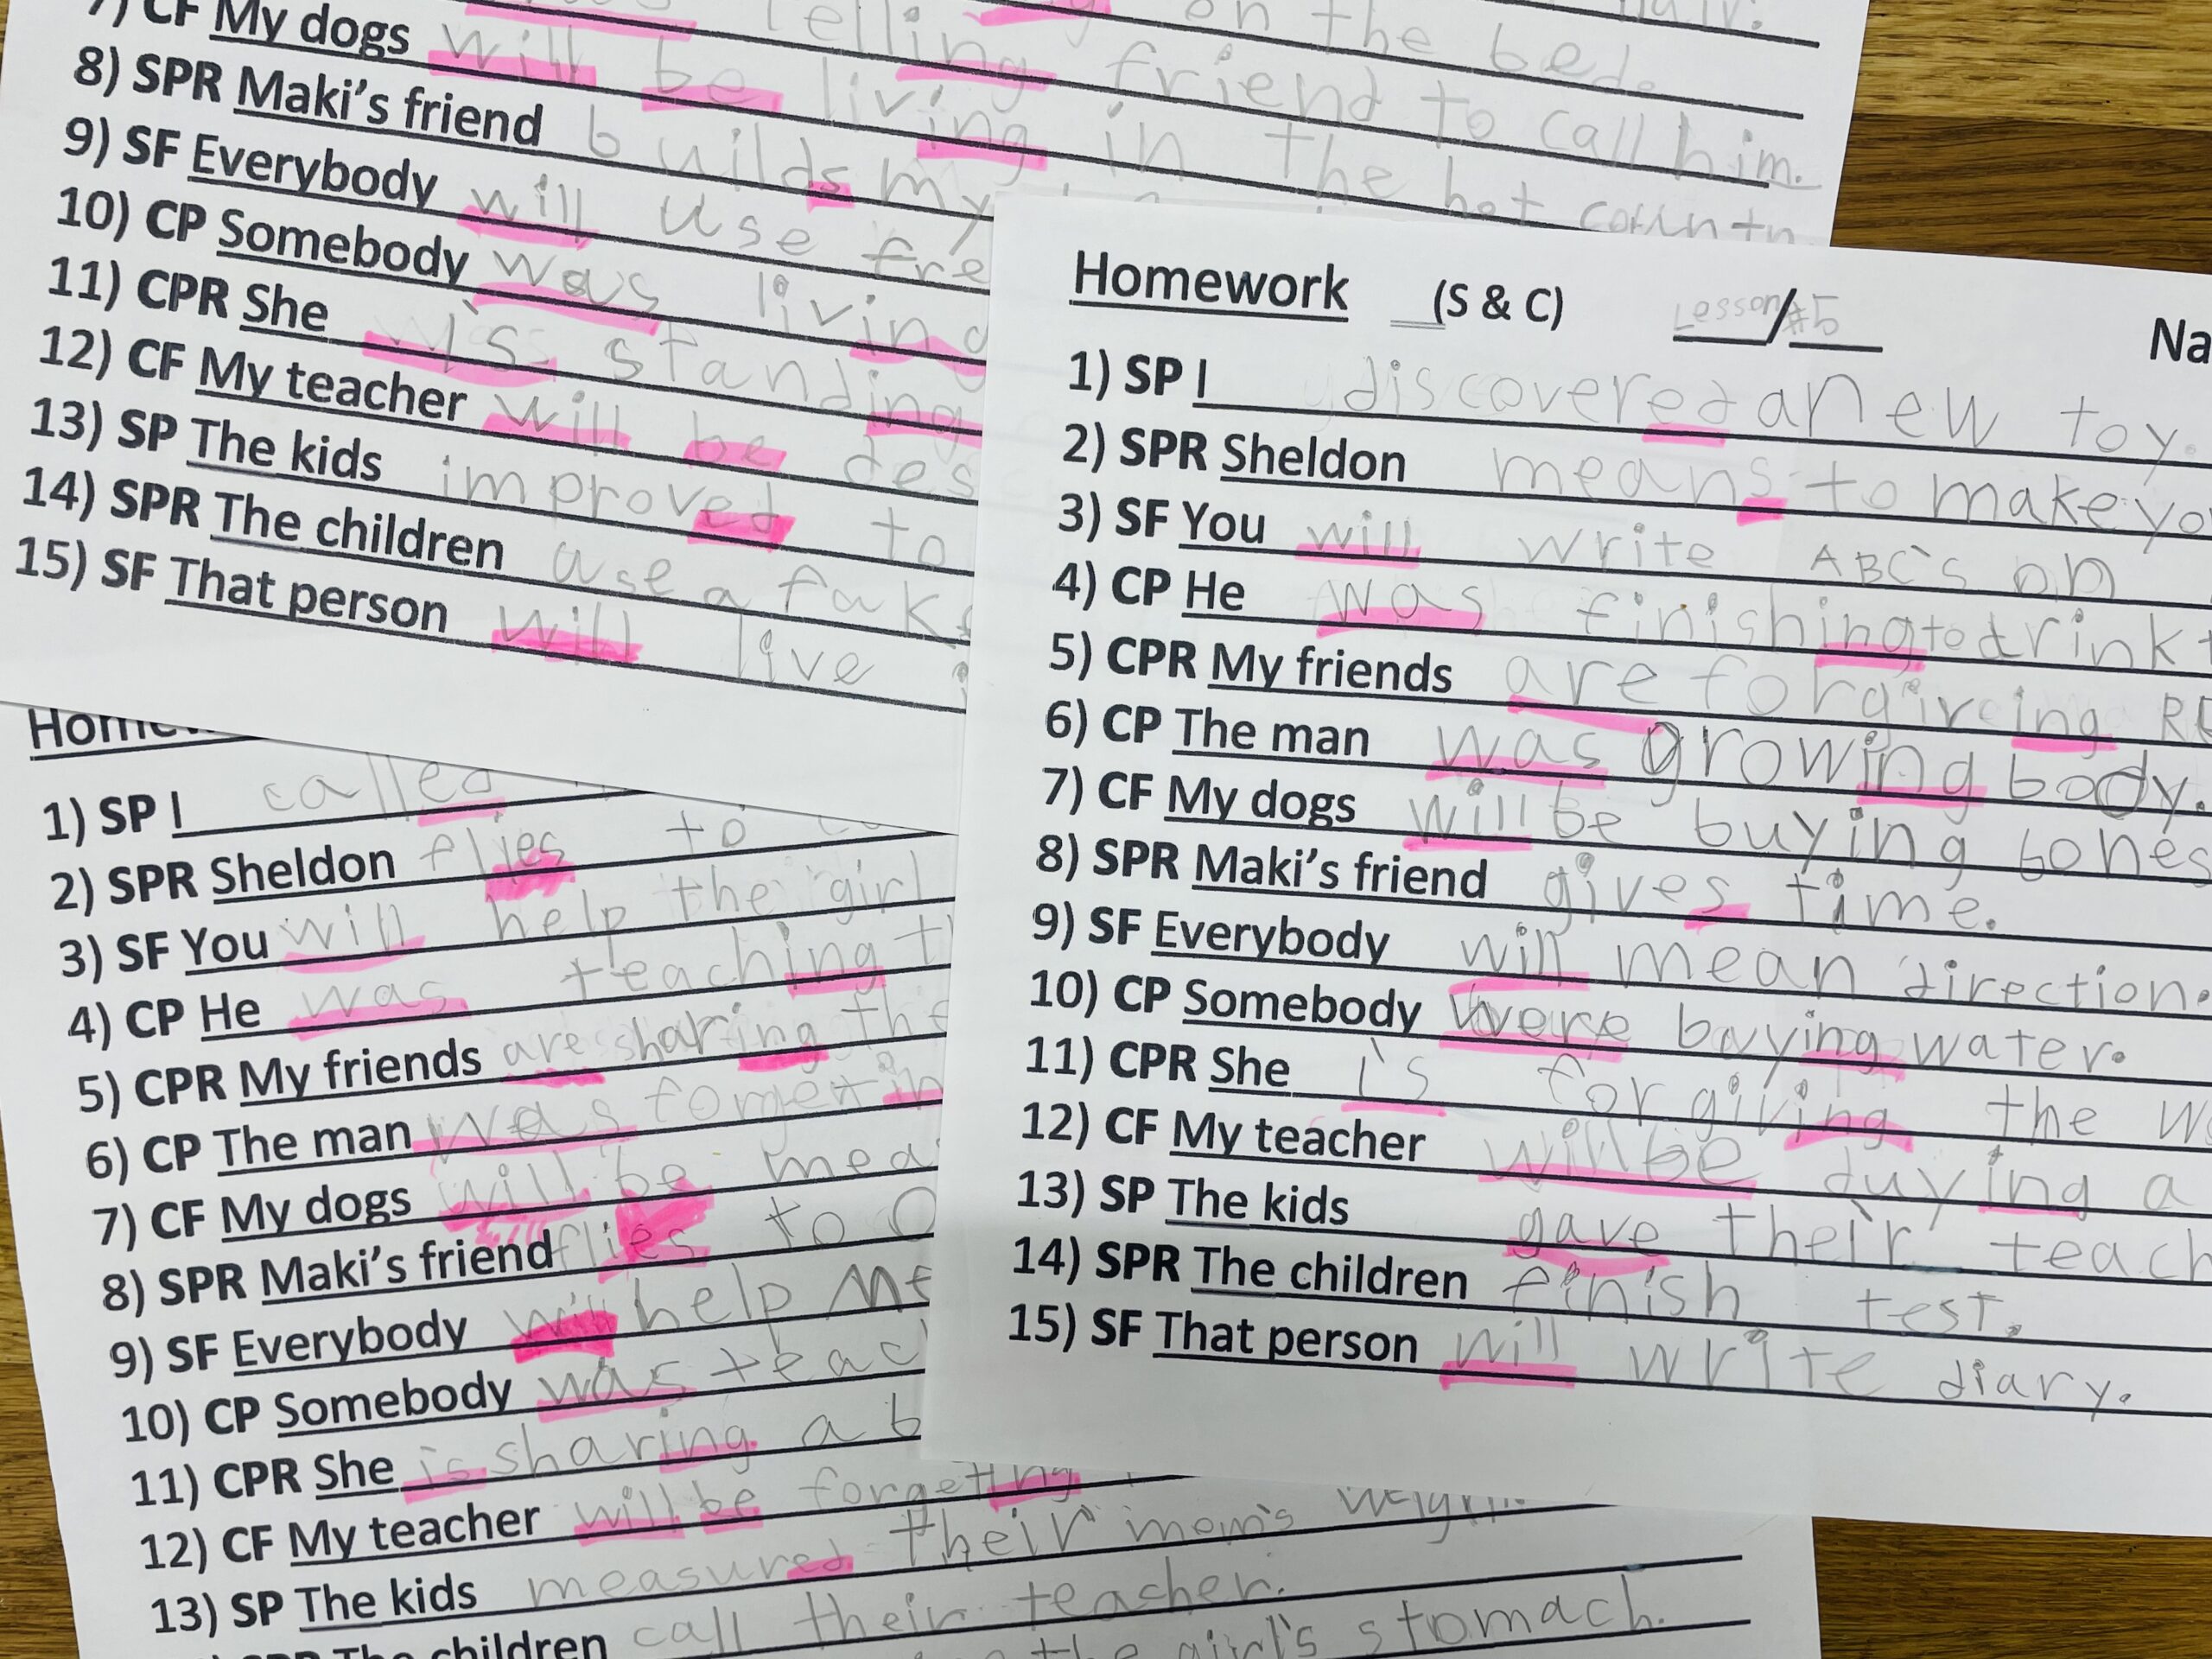 on the bed.
telling friend to call him.
7) CF My dogs will be living in the hot
8) SPR Maki's friend builds my
9) SF Everybody will use
10) CP Somebody was living
11) CPR She is standing
12) CF My teacher will be
13) SP The kids improved to
14) SPR The children use a
15) SF That person will live
Homework (S & C) Lesson/#5
1) SP I discovered a new toy.
2) SPR Sheldon means to make
3) SF You will write ABC's on
4) CP He was finishing to drink
5) CPR My friends are
6) CP The man was growing body.
7) CF My dogs will be buying bones
8) SPR Maki's friend gives time.
9) SF Everybody will mean direction.
10) CP Somebody were buying water.
11) CPR She is forgiving the
12) CF My teacher will be buying a
13) SP The kids gave their
14) SPR The children finish test.
15) SF That person will write diary.
1) SP I called
2) SPR Sheldon flies to
3) SF You will help the girl
4) CP He was teaching
5) CPR My friends are sharing
6) CP The man was
7) CF My dogs will be
8) SPR Maki's friend flies to
9) SF Everybody will help
10) CP Somebody was
11) CPR She is sharing a
12) CF My teacher will be
13) SP The kids measured their mom's
The children call their teacher.
the girl's stomach.